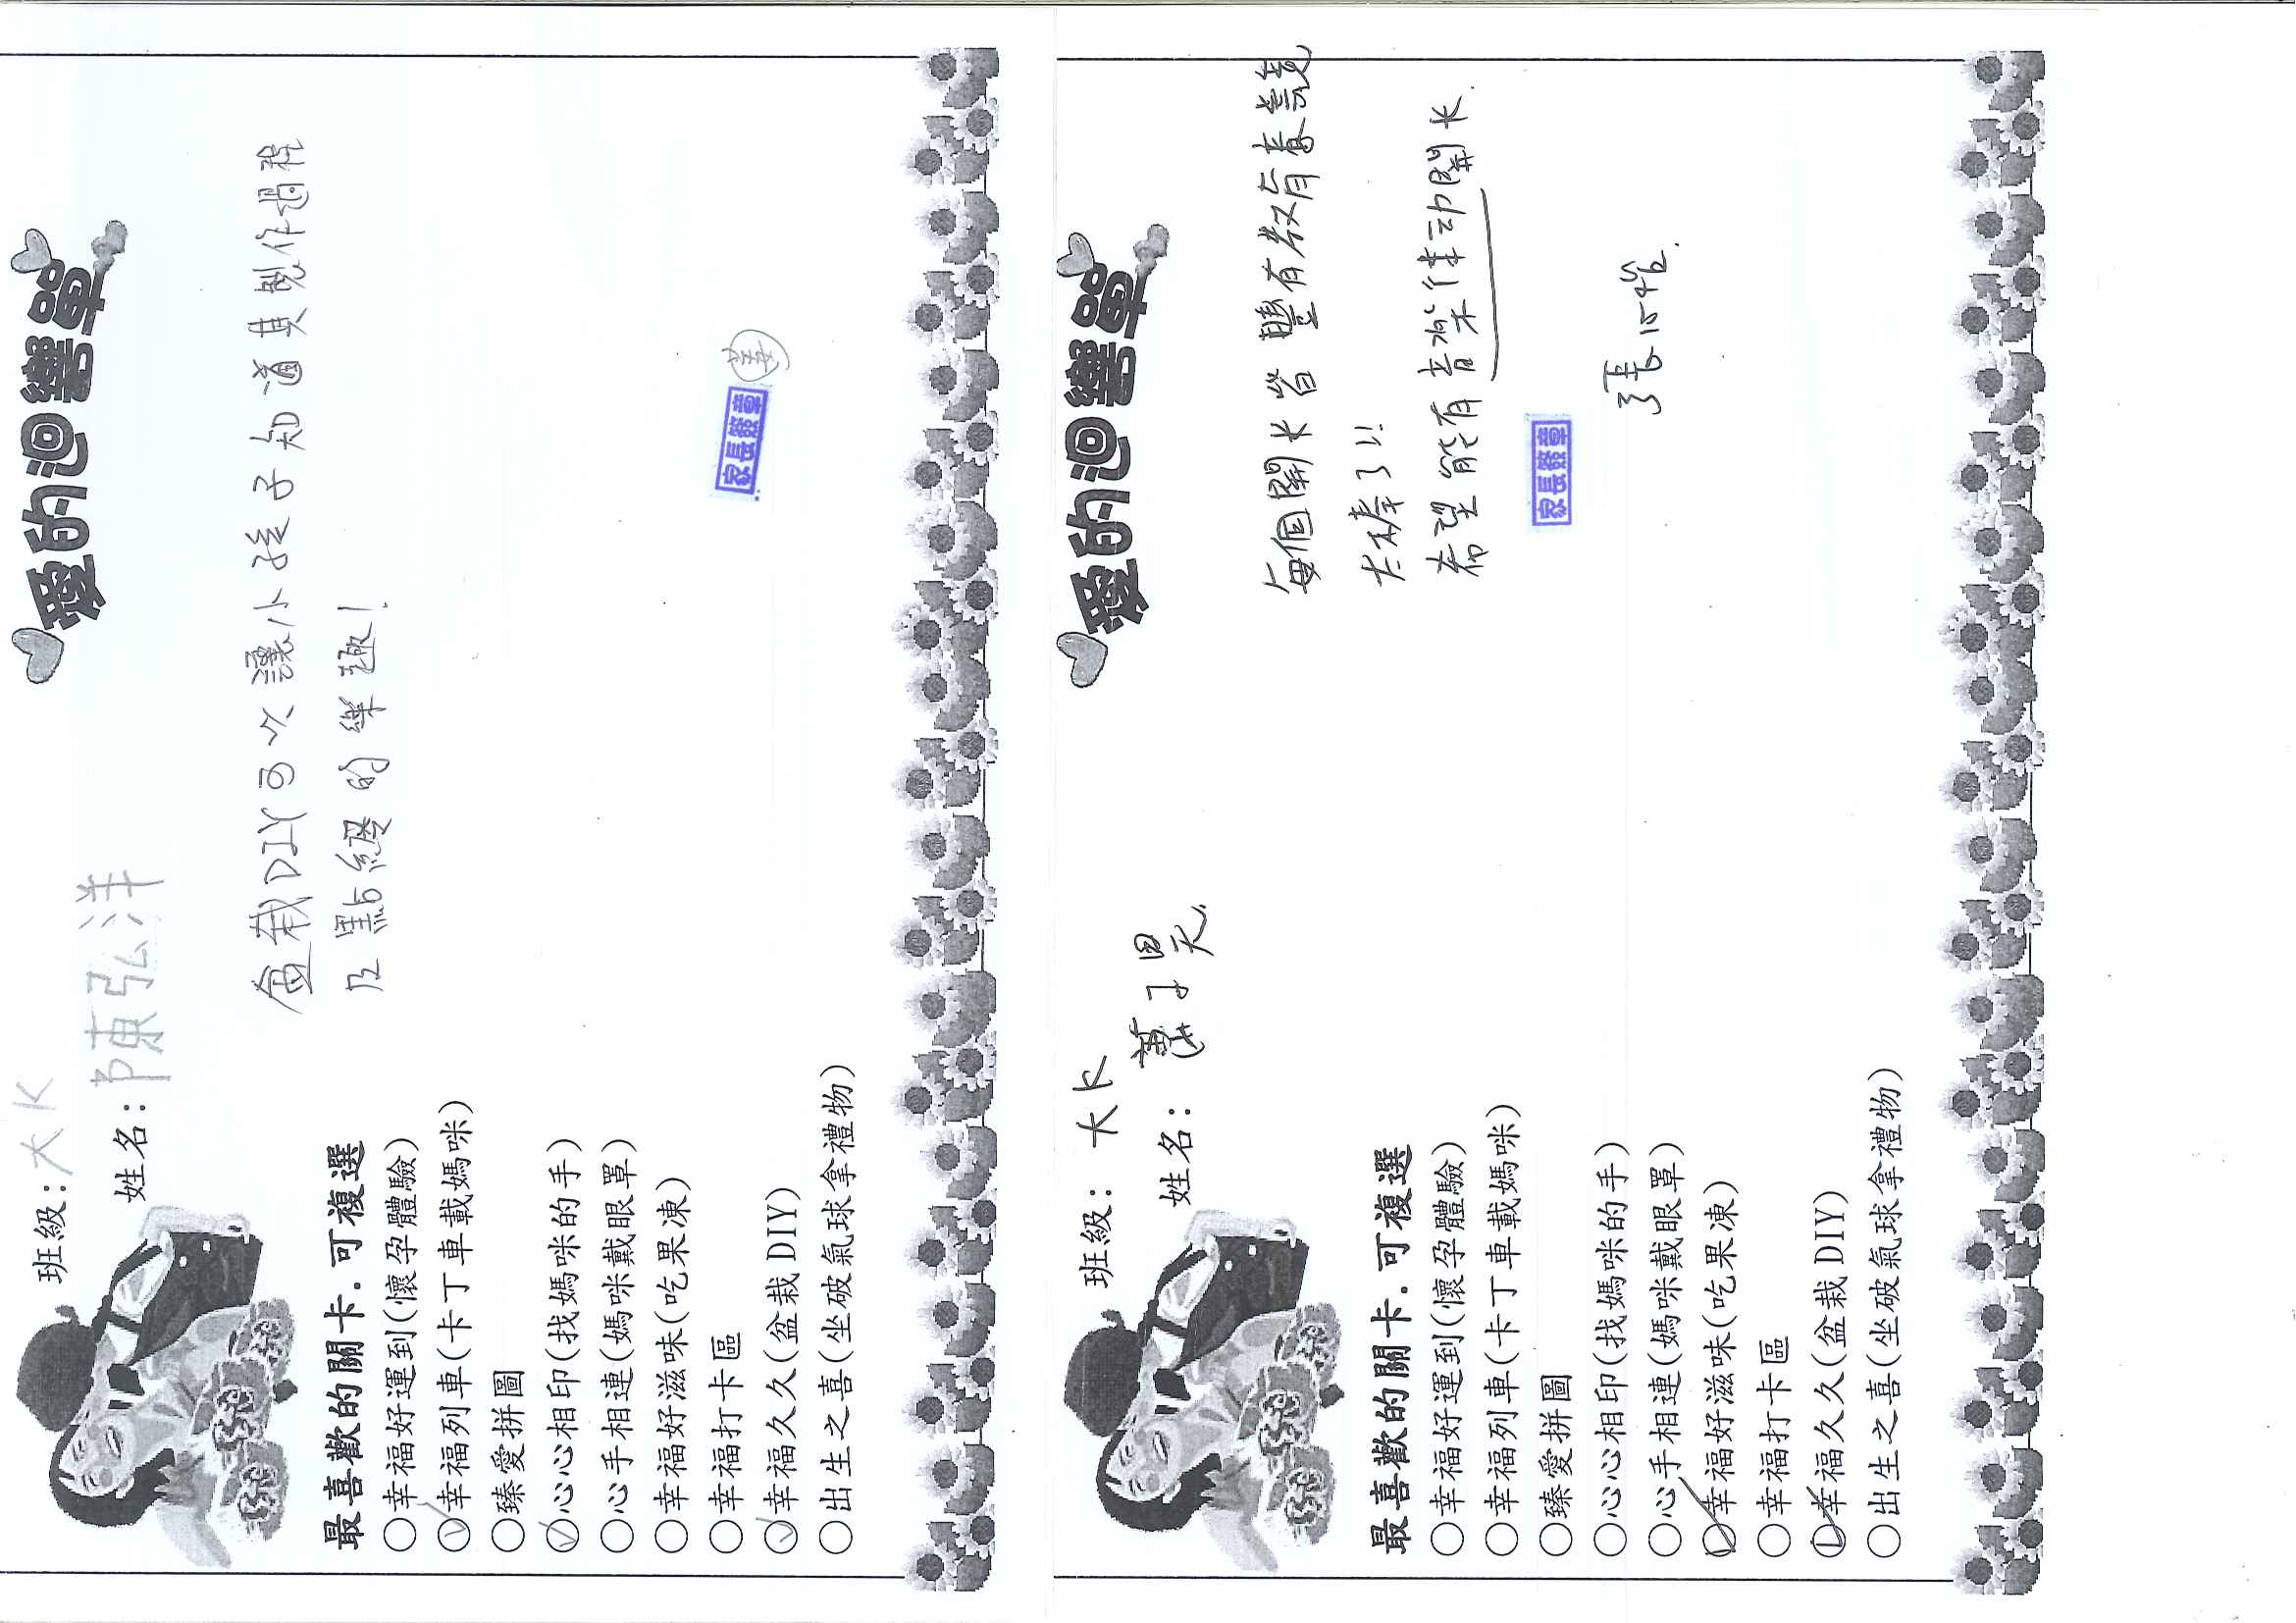 愛的迴響單
班級：大K
姓名：陳弘洋
最喜歡的關卡．可複選
○幸福好運到(懷孕體驗)
○幸福列車(卡丁車載媽咪)
○臻愛拼圖
○心心相印(找媽咪的手)
○心手相連(媽咪戴眼罩)
○幸福好滋味(吃果凍)
○幸福打卡區
○幸福久久(盆栽DIY)
○出生之喜(坐破氣球拿禮物)
盆栽DIY可以讓小孩子知道其製作過程
及點綴的樂趣！
家長簽章
愛的迴響單
班級：大K
姓名：蕭子昊
最喜歡的關卡．可複選
○幸福好運到(懷孕體驗)
○幸福列車(卡丁車載媽咪)
○臻愛拼圖
○心心相印(找媽咪的手)
○心手相連(媽咪戴眼罩)
○幸福好滋味(吃果凍)
○幸福打卡區
○幸福久久(盆栽DIY)
○出生之喜(坐破氣球拿禮物)
每個關卡皆豐有教育意境
太棒了!!
希望能有音樂律動關卡.
家長簽章